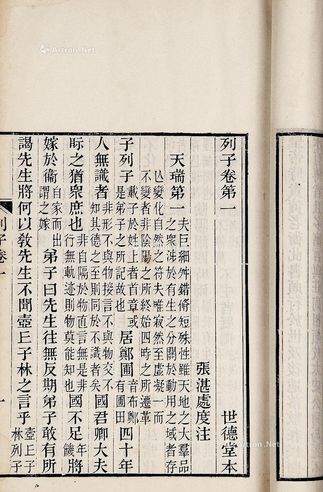 列子卷第一 世德堂本
張湛處度注
天瑞第一 夫巨細舛錯脩短殊性雖天地之大羣品
之衆涉於有生之分關於動用之域者存
亡變化自然之符夫唯寂然至虛凝一而
不變者非陰陽之所終始四時之所遷革
子列子 載子於姓上者首章或
是弟子之所記故也 居鄭圃 音布鄭
有圃田 四十年
人無識者 非形不與物接言不與物交不
知其德之至則同於不識者矣 國君卿大夫
眎之猶衆庶也 非自隔於物直言無是非
行無軌迹則物莫能知也 國不足 年
饑 將
嫁於衞 自家而出
謂之嫁 弟子曰先生往無反期弟子敢有所
謁先生將何以教先生不聞壺丘子林之言乎 壺丘子
林列子
列子卷一
一
Artron.Net